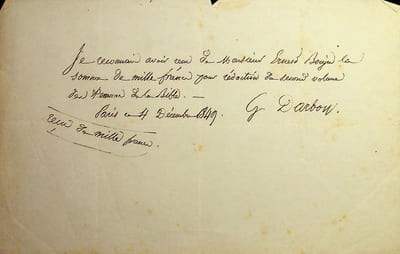 Je reconnais avoir reçu de Monsieur Ernest Bourjé la
somme de mille francs pour rédaction du second volume
des Femmes de la Bible. —
Paris ce 4 Décembre 1849. G Darboy.
reçu de mille francs.